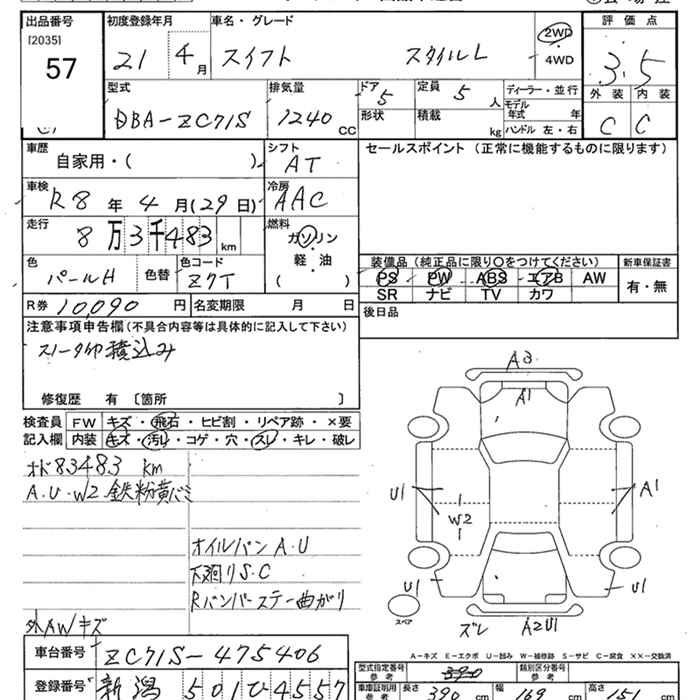 出品番号 初度登録年月 車名・グレード 評価点
[2035] 57 21 4月 スイフト スタイルL 2WD 4WD 3.5
型式 排気量 ドア 5 定員 5人 ディーラー・並行 外装 内装
DBA-ZC71S 1240cc 形状 積載 kg モデル年式 年 C C
ハンドル 左・右
車歴 シフト セールスポイント(正常に機能するものに限ります)
自家用・( ) AT
車検 冷房
R8年4月(29日) AAC
走行 燃料
8万3千483km ガソリン
軽・油
( )
色 色替 色コード 装備品(純正品に限り○をつけてください) 新車保証書
パールH Z7T PS PW ABS エアB AW 有・無
SR ナビ TV カワ
R券 10,090円 名変期限 月 日 後日品
注意事項申告欄(不具合内容等は具体的に記入して下さい)
積込み
修復歴 有〔箇所 〕
検査員 FW キズ・飛石・ヒビ割・リペア跡・×要
記入欄 内装 キズ・汚レ・コゲ・穴・スレ・キレ・破レ
オド83483km
A.U.W2 鉄粉黄バミ
オイルパンA.U
下廻りS.C
Rバンパーステー曲がり
外AWキズ
A3
A1
U1 A1
W2
U1 U1
スペア
ズレ A2U1
A-キズ E-エクボ U-凹み W-補修跡 S-サビ C-腐食 XX-交換済
車台番号 ZC71S-475406 型式指定番号 参考 類別区分番号 参考
登録番号 新潟 501 ひ 4557 車庫証明用 参考 長さ 390cm 幅 169cm 高さ 151cm